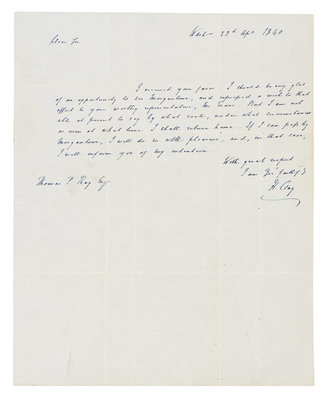 Washn 22d Apl 1840
Dear Sir
I received your favor. I should be very glad
of an opportunity to see Morgantown, and expressed a wish to that
effect to your worthy representative, Mr
But I am not
able at present to say by what route, under what circumstances
or even at what time I shall return home. If I can pass by
Morgantown, I will do so with pleasure, and, in that case,
I will inform you of my intention.
With great respect
I am Yr faithf
H. Clay
Thomas P. Ray Esq